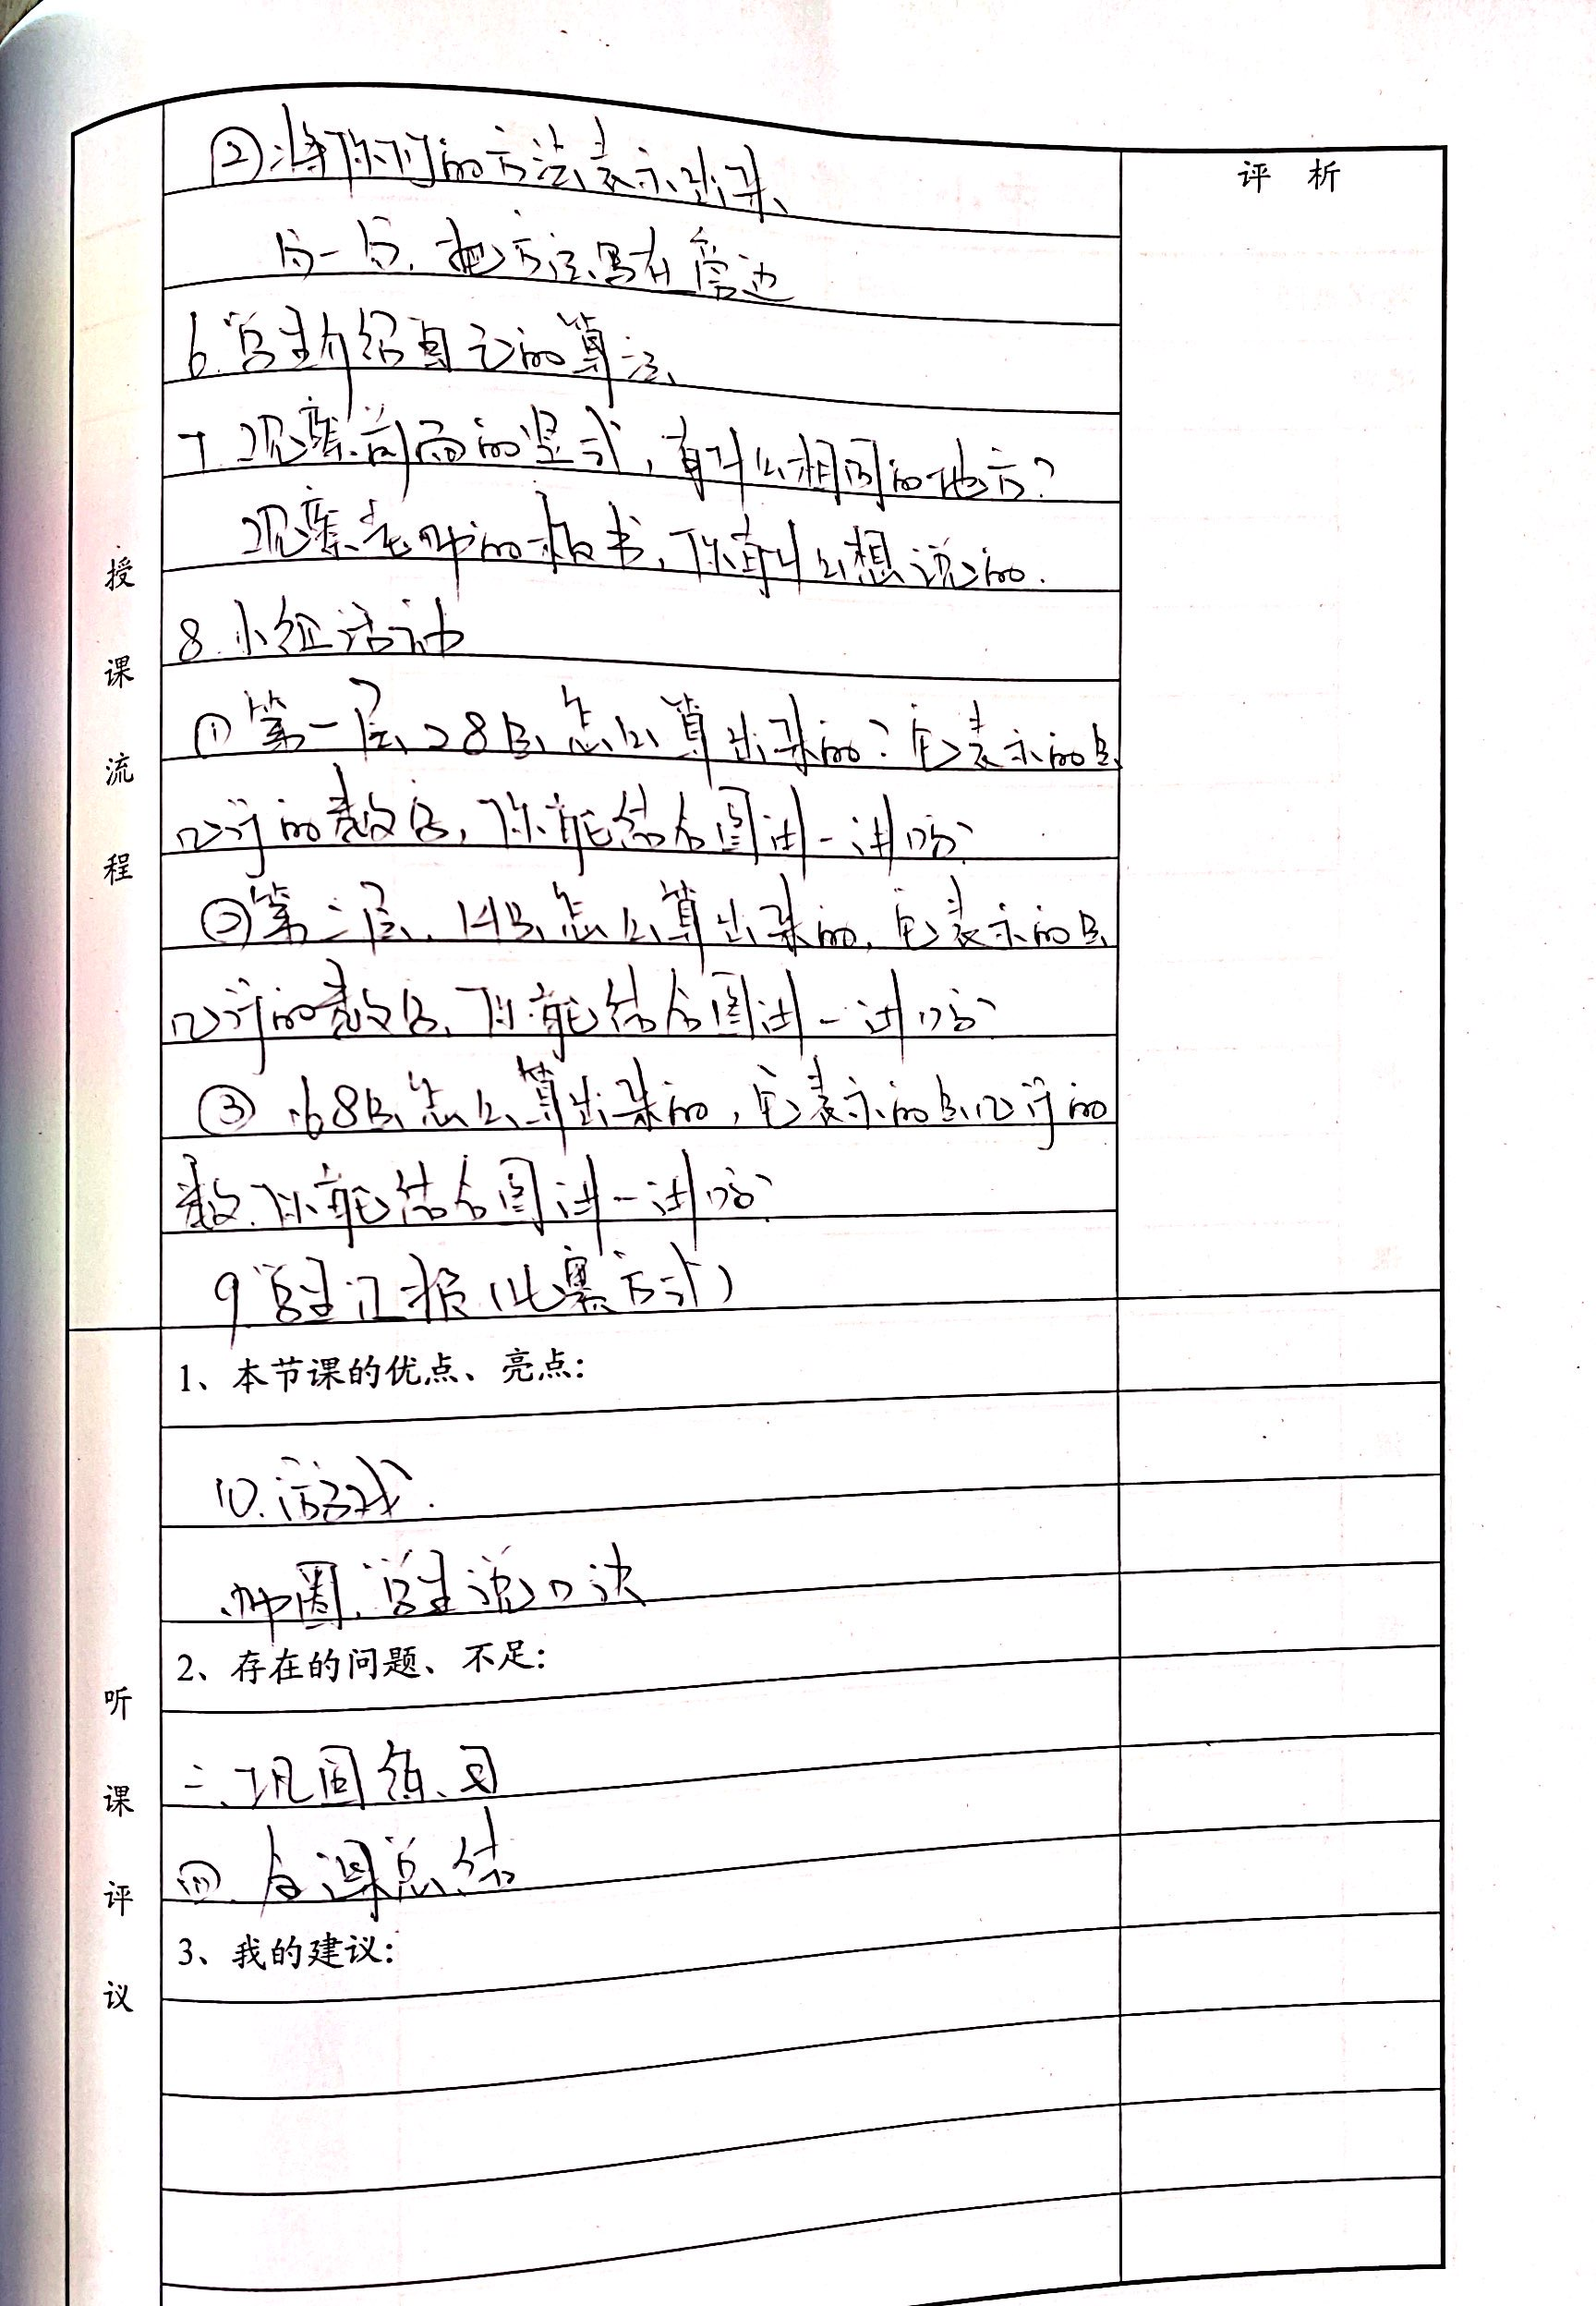 评 析
②将你们的方法表示出来、
分一分,把方法写在旁边
6.学生介绍自己的算法、
7.观察前面的竖式,有什么相同的地方?
观察老师的板书,你有什么想说的.
8.小组活动
①第一层28是怎么算出来的?它表示的是
几行的数字,你能结合图讲一讲吗?
②第二层,14是怎么算出来的,它表示的是
几行的数字,你能结合图讲一讲吗?
③ 168是怎么算出来的,它表示的是几行的
数,你能结合图讲一讲吗?
9.学生汇报(比赛方式)
授课流程
1、本节课的优点、亮点:
10.游戏.
学生说口诀
2、存在的问题、不足:
三、巩固练习
四、全课总结
3、我的建议:
听课评议